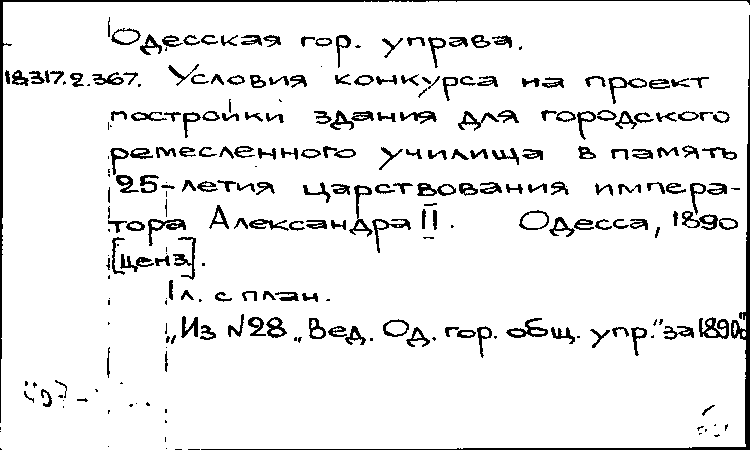 Одесская гор. управа.
18.317.2.367. Условия конкурса на проект
постройки здания для городского
ремесленного училища в память
25-летия царствования импера-
тора Александра II. Одесса, 1890
[ценз.].
1 л. с план.
"Из №28 "Вед. Од. гор. общ. упр." за 1890"